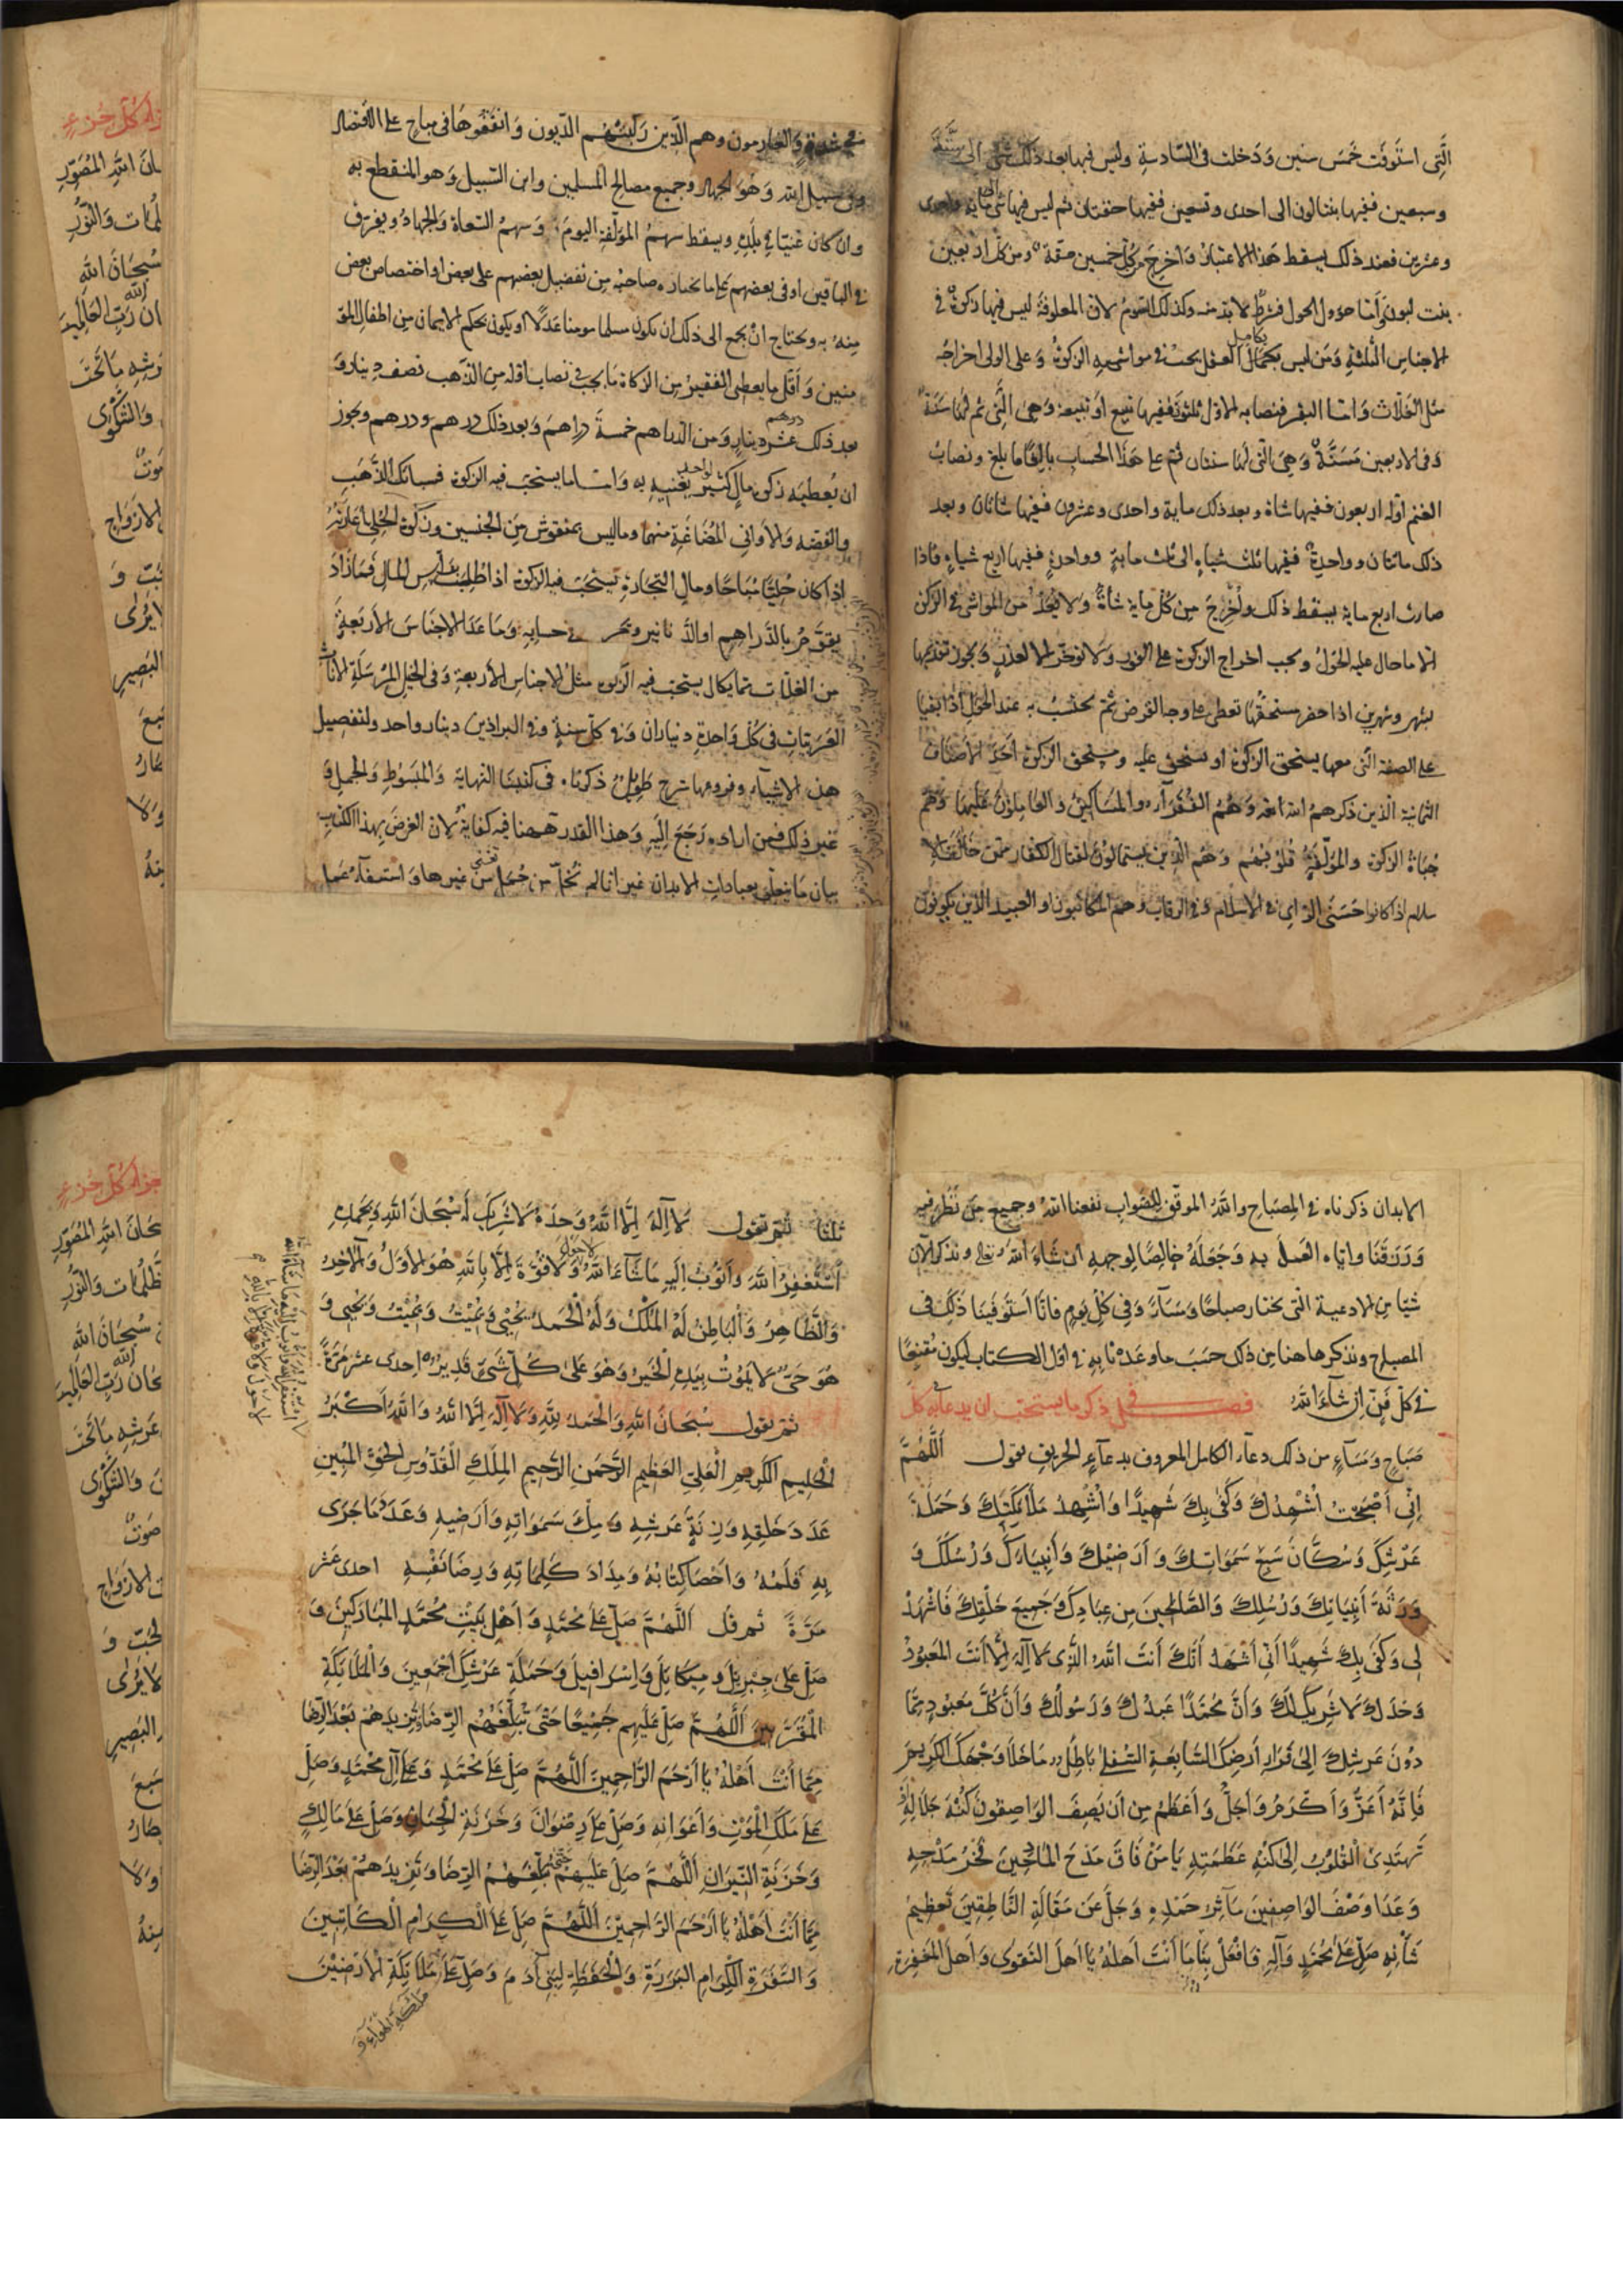 الَّتِى استَوفَت خَمسَ سنين وَدَخلت فى السّادسةِ وليس فيها بعد ذلك شئ الى ستَّةً
وسبعين ففيها بنتا لبون الى احدى وتسعين ففيها حقتان ثم ليس فيها شئ الى ماية واحدى
وعشرين فعند ذلك يسقط هَذا الاعتبارُ وَاخرِجَ من كُلّ خمسين حقّة ومن كلّ اربعين
بنت لبون وَأمّا حؤول الحول فشرطٌ لا بدّ منه وكذلك السّومُ لانّ المعلوفةَ ليس فيها زكوةٌ فى
الاجناسِ الثّلثةِ وَمَن ليس بكامل العقل يجبُ فى مواشيه الزكوةُ وَعلى الولى اخراجُه
مثل الغلّات وَامّا البقر فنصابه الاوّل ثلثون ففيها تبيع اَوْ تبيعة وَهِىَ الَّتِى تم لهَا سَنَةٌ
وَفى الاربعين مُسِنَّةٌ وَهِىَ الَّتِى لهَا سنتان ثُمّ على هَذَا الحسابِ بالِغًا ما بلغ ونصابُ
الغنم اوّله اربعون ففيها شاة وبعد ذلك ماية واحدى وعشرون ففيها شاتان وبعد
ذلك مائتان وواحدةٌ ففيها ثلث شياهٍ الى ثلث مايةٍ وواحدةٍ ففيها اربع شياهٍ فاذا
صارت اربع ماية يسقط ذلك وأُخْرِجَ مِن كُلّ مايةٍ شاةٌ وَلا يُعَدّ من المواشى فى الزكوة
الّا ما حال عليه الحَوْلُ ويجب اخراج الزكوةِ على الفور وَلا تؤخّر الّا لعذرٍ وَيجوز تقديمها
بشهرٍ وشهرين اذا حضر مستحقُّهَا تعطى على وجه القرض ثُمّ يُحتسَبُ به عند الحَوْلِ اذا بقيا
على الصفة الّتى معها يستحق الزكوة او تستحق عليه ومستحق الزكوة اَحَدُ الاَصناف
الثمانية الّذين ذكرهمُ الله تعه وَهُمُ الفُقَرَآء والمَساكينُ والعَامِلونَ عَلَيهَا وَهُم
جُباةُ الزكوة والمؤلّفَةُ قُلوبُهُم وَهُم الّذِينَ يستمالُونَ لقتالِ الكفّار ممّن خالفَ
سلام اذا كانوا حَسَنَى الرّاىِ فى الاِسلامِ وَفى الرقابِ وهم المكاتبون او العبيد الّذين يكونون
فى شدّةٍ وَالغارمون وهم الّذين رَكِبَتْهُم الدّيون وَانفقُوهَا فى مباحٍ على الاقتصاد
وفى سبيل الله وَهُوَ الجهاد وجميع مصالح المسلمين وابن السّبيل وَهو المنقطع به
وان كان غنيّا فى بلَدِه ويسقط سهمُ المؤلّفةِ اليومَ وَسهمُ السّعاةِ وَالجهادُ ويفرّق
فى الباقين او فى بعضهم على ما يختاره صاحبه مِن تفضيل بعضهم على بعض او اختصاص بعض
مِنهُ به ويحتاج انْ يجمع الى ذلك ان يكون مسلما مومنا عَدلًا او يكون بحكم الايمان مِن اطفال المؤ
منين وَاَقَلّ ما يعطى الفقيرُ مِن الزكاةِ مَا يجبُ فى نصاب اوّله مِن الذّهب نصف دينار وَ
بعد ذلك عشر دينارٍ وَمن الدّراهم خمسةُ دراهمَ وَبعد ذلك درهم ودرهم ويجوز
ان يُعطيَه زكوة مالٍ كثيرٍ لواحدٍ يُغنيهِ به وَامّا ما يستحبّ فيه الزكوة فسبائك الذَّهَبِ
والفضّه وَالاَوانى المُصَاغَةِ منهما وماليس بمنقوش مِنَ الجنسين وزكوةُ الحُلِىّ اعارتهُ
اذا كان حُلِيًّا مُباحًا ومالِ التّجارةِ يستحبّ فيه الزكوة اذا طُلِبَ برأسِ المالِ فَمَازَادَ
يُقوَّمُ بالدّراهِمِ او الدّنانيرِ ويخرج فى حسابه وَمَا عَدَا الاجنَاسَ الاربَعةِ
من الغلّات ممّا يكال يستحبّ فيه الزكوة مثلُ الاجناسِ الاربعةِ وَفى الخيلِ المُرسَلَةِ الاناثِ
العَرَبيّاتِ فى كُلّ وَاحدةٍ ديناران فى كلّ سنةٍ وفى البراذين دينار واحد ولتفصيل
هذه الاشيآء وفروعها شرح طَوِيلٌ ذكرناه فى كتبنا النهاية وَالمَبسوطِ وَالجُمَلِ وَ
غير ذلك فمن اراده رَجَعَ اِلَيهِ وَهذا القدر ههنا فيه كفايةٌ لان الغرضَ بِهذا الكتاب
بيان مَا يتعلّق بعباداتِ الابدان غير انّا لم نُخلّ من جُمَلٍ من غيرها وَاستعفاء عمل
الابدان ذكرناه فى المِصبَاح واللهُ الموفّق للصّوابِ نفعنا اللهُ وجميع مَن نَظَر فيه
وَرَزَقَنَا واياه العَملَ بِهِ وَجَعَلَهُ خالِصًا لِوجهِهِ ان شَاءَ اللهُ تعالى ونذكر الآن
شيًا من الادعية الّتى تختار صباحًا وَمَسَآءً وَفِى كلّ يومٍ فانّا استَوفَينا ذلك فى
المصباح ونذكر هاهنا مِن ذلك حسَبَ ما وعَدْنا به فى اوّل الكتاب ليكون مُقنِعًا
فى كلّ فَنّ اِن شآءَ اللهُ فصل فى ذكر ما يستحبّ ان يدعا به كل
صَباحٍ وَمَسَآءٍ من ذلك دعآء الكامل المعروف بدعآءِ الحريق يقول اَللّٰهُمَّ
اِنّى أَصْبَحتُ اُشْهِدُكَ وَكَفٰى بِكَ شَهِيدًا وَاُشْهِدُ مَلَآئِكَتِكَ وَحَمَلَةَ
عَرْشِكَ وَسُكّانَ سَبعِ سَمَوَاتِكَ وَ اَرَضيْكَ وَأَنبِيَاءَكَ وَرُسُلَكَ وَ
وَرَثَةَ أَنبِيَائِكَ وَرُسُلِكَ وَالصَّالحِينَ مِن عِبادِكَ وَجَميعَ خَلْقِكَ فَاشْهَدْ
لِى وَكَفٰى بِكَ شَهِيدًا اَنِّى اَشْهَدُ اَنَّكَ اَنتَ اللهُ الَّذِى لَا اِلٰهَ اِلَّا اَنتَ المَعبُودُ
وَحدَكَ لَا شَرِيكَ لَكَ وَاَنَّ مُحَمّدًا عَبدُكَ وَرَسُولُكَ وَاَنَّ كُلَّ مَعبُودٍ مِمَّا
دُونَ عَرشِكَ اِلىٰ قَرَارِ اَرضِكَ السّابِعَةِ السّفلىٰ بَاطِلٌ مَا خَلَا وَجْهَكَ الكَرِيمَ
فَاِنَّهُ اَعَزُّ وَاَكْرَمُ وَاَجَلُّ وَاَعظَمُ مِن اَن يَصِفَ الوَاصِفونَ كُنْهَ جَلَالِهِ اَوْ
تَهتَدِىَ القلُوبُ اِلى كُنْهِ عَظَمَتِهِ يَا مَنْ فَاقَ مَدْحَ المَادِحِينَ فَخْرُ مَدْحِهِ
وَعَدَا وَصْفَ الوَاصِفِينَ مَآثِرُ حَمْدِهِ وَجَلَّ عَن مَقالَةِ النَّاطِقِينَ تَعظِيمُ
شَأْنِهِ صَلِّ عَلىٰ مُحَمَّدٍ وَآلِهِ فَافعَلْ بِنَا مَا اَنْتَ اَهلُهُ يَا اَهلَ التَقوٰى وَاَهلَ المَغفِرَةِ
ثلثا ثمّ تقول لَا اِلٰهَ اِلَّا اللهُ وَحدَهُ لَا شَرِيكَ لَهُ سُبْحَانَ اللهِ وَبِحَمدِهِ
اَسْتَغفِرُ اللهَ وَاَتُوْبُ اِلَيهِ مَا شَآءَ اللهُ وَلَا قُوَّةَ اِلَّا بِاللهِ هُوَ الاَوَّلُ وَالآخِرُ
وَالظَّاهِرُ وَالبَاطِنُ لَهُ المُلْكُ وَلَهُ الحَمدُ يُحْيِى وَيُمِيْتُ وَيُمِيْتُ وَيُحيِى وَ
هُوَ حَىٌّ لَا يَمُوتُ بِيَدِهِ الخَيرُ وَهُوَ عَلىٰ كُلِّ شَىْءٍ قَدِيرٌ احدى عشر مَرّةً
ثم يقول سُبْحَانَ اللهِ وَالحَمدُ لِلّٰهِ وَلَا اِلٰهَ اِلَّا اللهُ وَاللهُ اَكْبَرُ
الحَلِيمِ الكَرِيمِ العَلِىِّ العَظِيمِ الرَّحمٰنِ الرَّحِيمِ المَلِكِ القُدّوسِ الحَقّ المُبِينِ
عَدَدَ خَلقِهِ وَزِنَةَ عَرشِهِ وَمِلْءَ سَمَوَاتِهِ وَاَرَضِيهِ وَعَدَدَ مَا جَرىٰ
بِهِ قَلَمُهُ وَاَحْصَا كِتَابُهُ وَمِدَادَ كَلِمَاتِهِ وَرِضَا نَفْسِهِ احدى عشر
مَرّةً ثم قل اَللّٰهُمَّ صَلِّ عَلىٰ مُحَمَّدٍ وَاَهْلِ بَيْتِ مُحَمَّدٍ المُبَارَكِينَ وَ
صَلِّ عَلىٰ جِبرِيلَ وَمِيكَايلَ وَاِسْرَافِيلَ وَحَمَلَةِ عَرْشِكَ اَجْمَعِينَ وَالمَلَآئِكَةِ
المُقَرَّبِينَ اَللّٰهُمَّ صَلِّ عَلَيهِم جَمِيعًا حَتّىٰ تُبَلِّغَهُمْ الرِّضَا وَتَزِيدَهُمْ بَعْدَ الرِّضَا
مِمَّا اَنْتَ اَهْلُهُ يَا اَرْحَمَ الرَّاحِمِينَ اَللّٰهُمَّ صَلِّ عَلىٰ مُحَمَّدٍ وَعَلىٰ آلِ مُحَمَّدٍ وَصَلِّ
عَلىٰ مَلَكِ المَوْتِ وَاَعْوَانِهِ وَصَلِّ عَلىٰ رِضْوَانَ وَخَزَنَةِ الجِنَانِ وَصَلِّ عَلىٰ مَالِكٍ
وَخَزَنَةِ النِّيرَانِ اَللّٰهُمَّ صَلِّ عَلَيهِمْ حَتّىٰ تُبَلِّغَهُمُ الرِّضَا وَتَزِيدَهُمْ بَعْدَ الرِّضَا
مِمَّا اَنْتَ اَهْلُهُ يَا اَرْحَمَ الرَّاحِمِيْنَ اَللّٰهُمَّ صَلِّ عَلىٰ الكِرَامِ الكَاتِبِينَ
وَالسَّفَرَةِ الكِرَامِ البَرَرَةِ وَالحَفَظَةِ لِبَنِى آدَمَ وَصَلِّ عَلىٰ مَلَآئِكَةِ الاَرَضِيْنَ
مَلآئكةِ الهوآءِ وَ